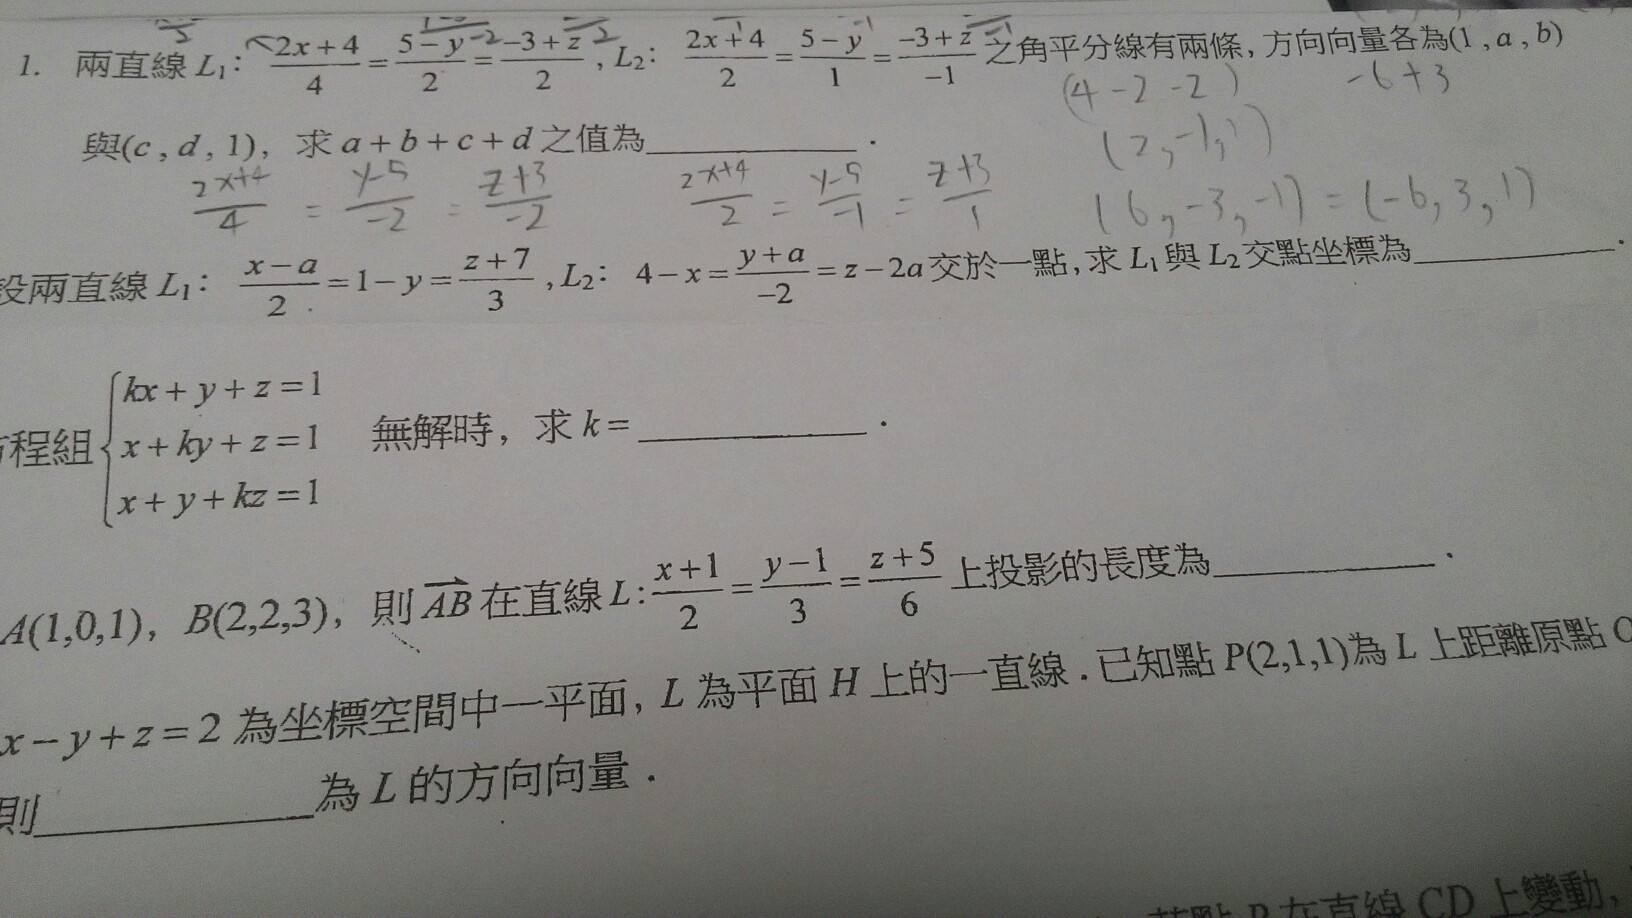 1. 兩直線 L₁: (2x+4)/4 = (5−y)/2 = (−3+z)/2 , L₂: (2x+4)/2 = (5−y)/1 = (−3+z)/−1 之角平分線有兩條, 方向向量各為(1 , a , b)
(4 -2 -2) -6+3
與(c , d , 1), 求 a + b + c + d 之值為____________ .
(2, -1, 1)
(2x+4)/4 = (y-5)/-2 = (z+3)/-2 (2x+4)/2 = (y-5)/-1 = (z+3)/1 (6, -3, -1) = (-6, 3, 1)
設兩直線 L₁: (x−a)/2 = 1−y = (z+7)/3 , L₂: 4−x = (y+a)/−2 = z−2a 交於一點, 求 L₁與 L₂交點坐標為____________ .
kx + y + z = 1
程組 x + ky + z = 1 無解時, 求 k = ____________ .
x + y + kz = 1
A(1,0,1), B(2,2,3), 則 AB 在直線 L: (x+1)/2 = (y−1)/3 = (z+5)/6 上投影的長度為____________ .
x − y + z = 2 為坐標空間中一平面, L 為平面 H 上的一直線 . 已知點 P(2,1,1)為 L 上距離原點 O
則____________為 L 的方向向量 .
在直線 CD 上變動,